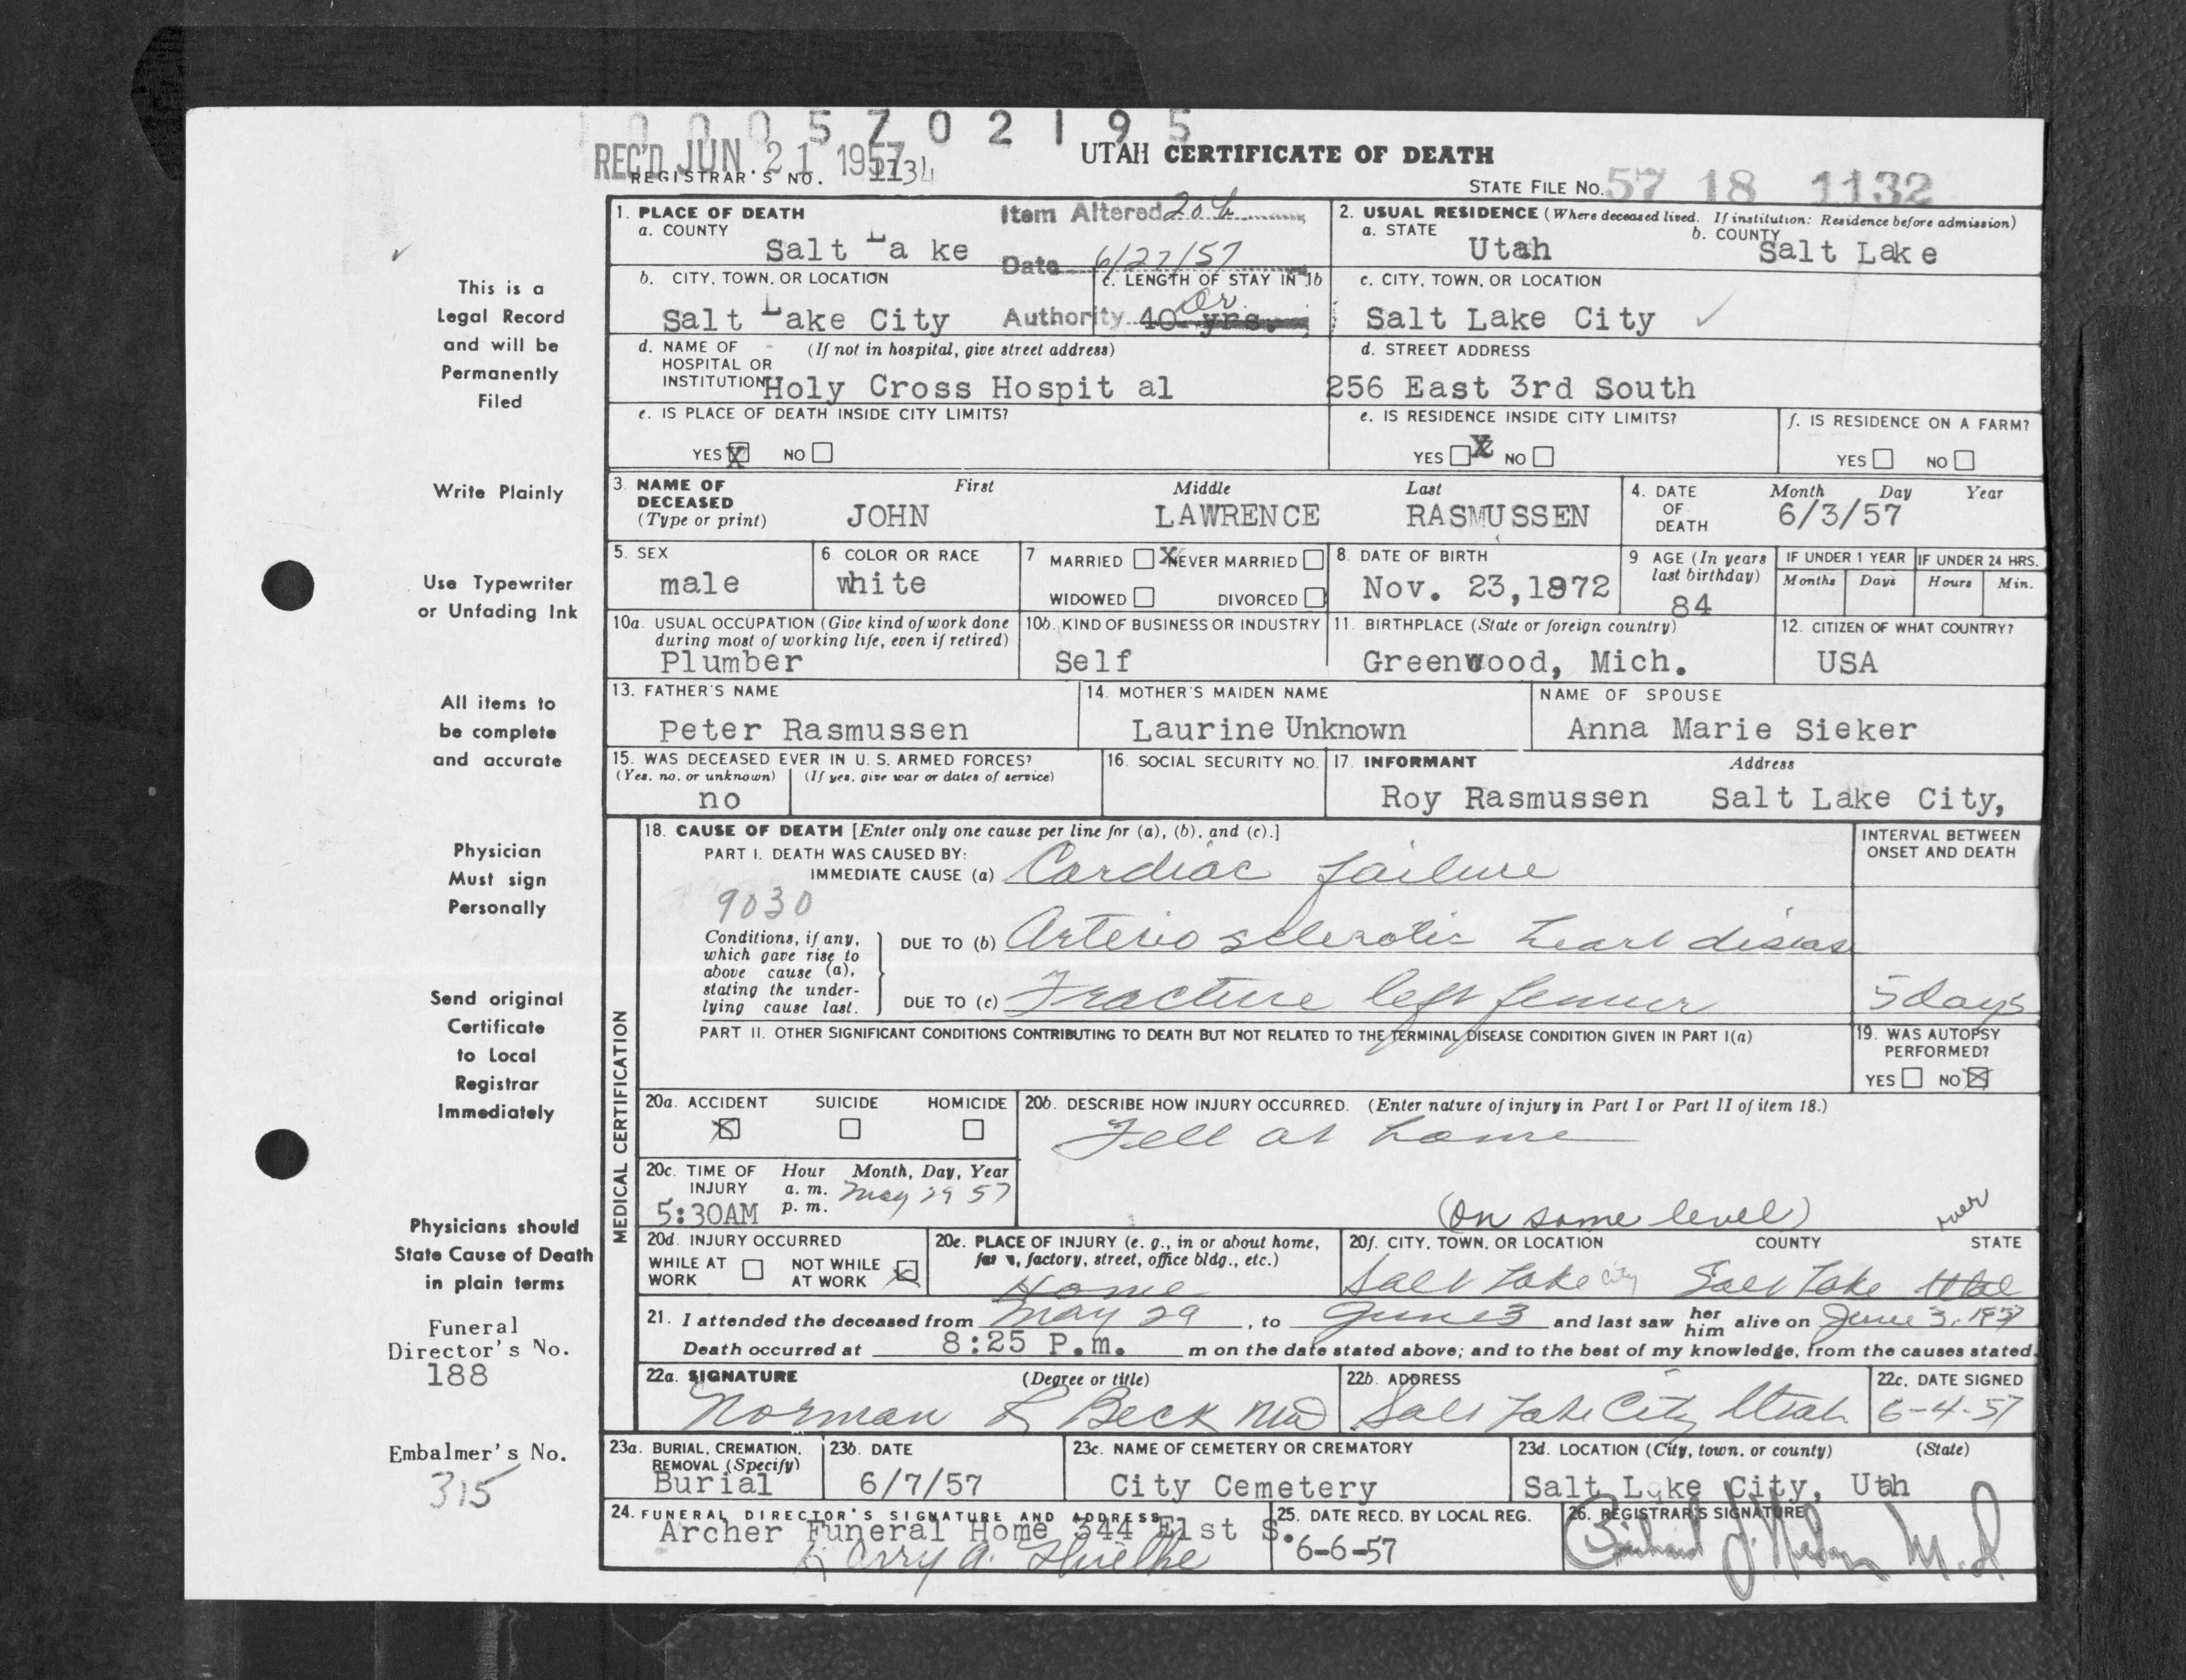 0005702195
REC'D JUN 21 1957
REGISTRAR'S NO. 1134
UTAH CERTIFICATE OF DEATH
STATE FILE NO. 57 18 1132
1. PLACE OF DEATH
a. COUNTY
Salt La ke
Item Altered 20b
Date 6/27/57
2. USUAL RESIDENCE (Where deceased lived. If institution: Residence before admission)
a. STATE
Utah
b. COUNTY
Salt Lake
b. CITY, TOWN, OR LOCATION
Salt Lake City
c. LENGTH OF STAY IN 1b
Authority Dr.
40 yrs.
c. CITY, TOWN, OR LOCATION
Salt Lake City
d. NAME OF HOSPITAL OR INSTITUTION (If not in hospital, give street address)
Holy Cross Hospit al
d. STREET ADDRESS
256 East 3rd South
e. IS PLACE OF DEATH INSIDE CITY LIMITS?
YES X NO
e. IS RESIDENCE INSIDE CITY LIMITS?
YES X NO
f. IS RESIDENCE ON A FARM?
YES NO
3. NAME OF DECEASED (Type or print)
First Middle Last
JOHN LAWRENCE RASMUSSEN
4. DATE OF DEATH
Month Day Year
6/3/57
5. SEX
male
6. COLOR OR RACE
white
7 MARRIED X NEVER MARRIED
WIDOWED DIVORCED
8. DATE OF BIRTH
Nov. 23,1872
9 AGE (In years last birthday)
84
IF UNDER 1 YEAR
Months Days
IF UNDER 24 HRS.
Hours Min.
10a. USUAL OCCUPATION (Give kind of work done during most of working life, even if retired)
Plumber
10b. KIND OF BUSINESS OR INDUSTRY
Self
11. BIRTHPLACE (State or foreign country)
Greenwood, Mich.
12. CITIZEN OF WHAT COUNTRY?
USA
13. FATHER'S NAME
Peter Rasmussen
14. MOTHER'S MAIDEN NAME
Laurine Unknown
NAME OF SPOUSE
Anna Marie Sieker
15. WAS DECEASED EVER IN U. S. ARMED FORCES?
(Yes, no, or unknown) (If yes, give war or dates of service)
no
16. SOCIAL SECURITY NO.
17. INFORMANT Address
Roy Rasmussen Salt Lake City,
MEDICAL CERTIFICATION
18. CAUSE OF DEATH [Enter only one cause per line for (a), (b), and (c).]
PART I. DEATH WAS CAUSED BY:
IMMEDIATE CAUSE (a) Cardiac failure
INTERVAL BETWEEN ONSET AND DEATH
9030
Conditions, if any, which gave rise to above cause (a), stating the underlying cause last.
DUE TO (b) Arterio sclerotic heart disease
DUE TO (c) Fracture left femur
5 days
PART II. OTHER SIGNIFICANT CONDITIONS CONTRIBUTING TO DEATH BUT NOT RELATED TO THE TERMINAL DISEASE CONDITION GIVEN IN PART I(a)
19. WAS AUTOPSY PERFORMED?
YES NO X
20a. ACCIDENT SUICIDE HOMICIDE
X
20b. DESCRIBE HOW INJURY OCCURRED. (Enter nature of injury in Part I or Part II of item 18.)
Fell at home
(on same level)
over
20c. TIME OF INJURY
Hour Month, Day, Year
a. m. May 29 57
p. m.
5:30AM
20d. INJURY OCCURRED
WHILE AT WORK NOT WHILE AT WORK X
20e. PLACE OF INJURY (e. g., in or about home, farm, factory, street, office bldg., etc.)
Home
20f. CITY, TOWN, OR LOCATION COUNTY STATE
Salt Lake city Salt Lake Utah
21. I attended the deceased from May 29, to June 3 and last saw her him alive on June 3, 1957
Death occurred at 8:25 P.m. m on the date stated above; and to the best of my knowledge, from the causes stated.
22a. SIGNATURE (Degree or title)
Norman R Beck MD
22b. ADDRESS
Salt Lake City Utah
22c. DATE SIGNED
6-4-57
23a. BURIAL, CREMATION, REMOVAL (Specify)
Burial
23b. DATE
6/7/57
23c. NAME OF CEMETERY OR CREMATORY
City Cemetery
23d. LOCATION (City, town, or county) (State)
Salt Lake City, Utah
24. FUNERAL DIRECTOR'S SIGNATURE AND ADDRESS
Archer Funeral Home 344 E1st S.
25. DATE RECD. BY LOCAL REG.
6-6-57
26. REGISTRAR'S SIGNATURE
M.D
This is a
Legal Record
and will be
Permanently
Filed
Write Plainly
Use Typewriter
or Unfading Ink
All items to
be complete
and accurate
Physician
Must sign
Personally
Send original
Certificate
to Local
Registrar
Immediately
Physicians should
State Cause of Death
in plain terms
Funeral
Director's No.
188
Embalmer's No.
315